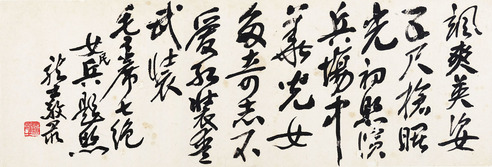 飒爽英姿
五尺枪曙
光初照演
兵场中
华儿女
多奇志不
爱红装爱
武装
毛主席七绝
女民兵题照